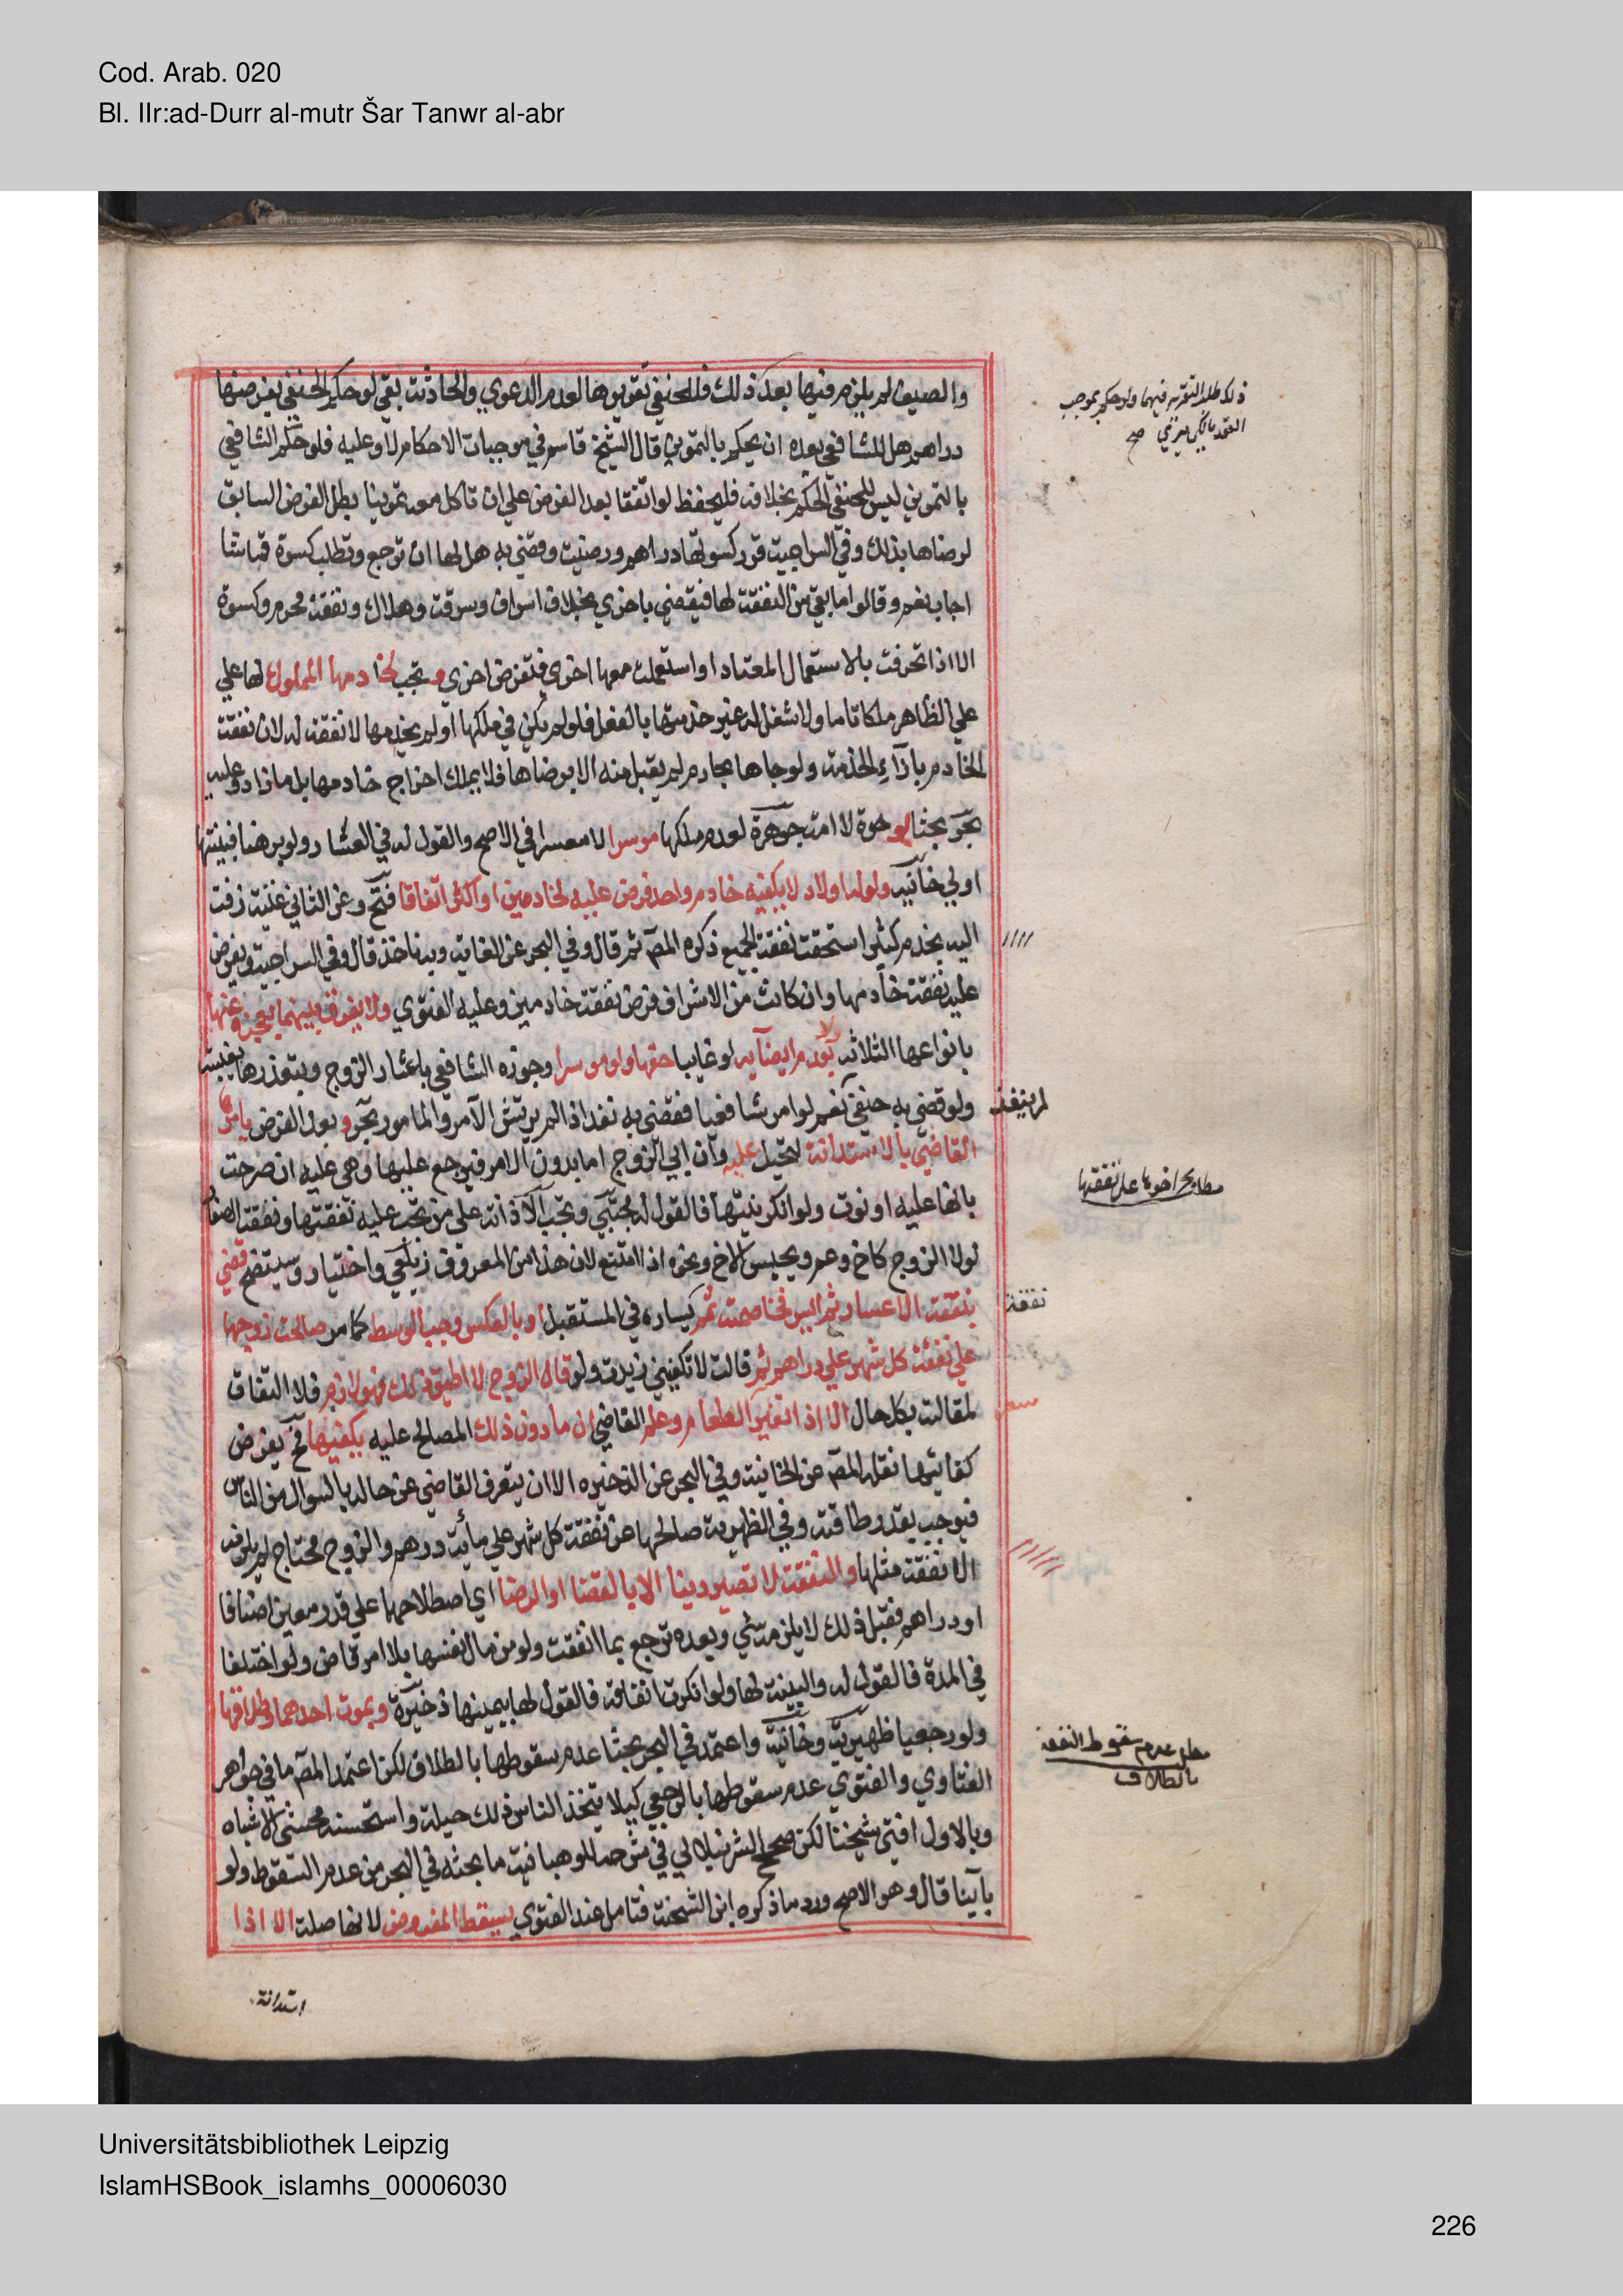 Cod. Arab. 020
Bl. IIr:ad-Durr al-mutr Šar Tanwr al-abr
والصيف لم يلزم فيها بعد ذلك فللحنفي تقويرها لعدم الدعوي والحادثة بقي لو حكم الحنفي بفرضها
دراهم هل للشافعي بعده ان يحكم بالتموين قال الشيخ قاسم في موجبات الاحكام لا وعليه فلو حكم الشافعي
بالتموين ليس للحنفي الحكم بخلافه فليحفظ لو اتفقا بعد الفرض علي ان تاكل معه تموينا بطل الفرض السابق
لرضاها بذلك وفي السراجية قدر كسوتها دراهم ورضيت وقضي به هل لها ان ترجع وتطلب كسوة قماشا
اجاب نعم وقالوا ما بقي من النفقة لها فيقضي باخري بخلاف اسراف وسرقة وهلاك ونفقة محرم وكسوة
الا اذا تخرقت بالاستعمال المعتاد او استعملت معها اخري فتفرض اخري وتجب لخادمها المملوك لها علي
علي الظاهر ملكا تاما ولا شغل له غير خدمتها بالفعل فلو لم يكن في ملكها او لم يخدمها لا نفقة له لان نفقة
الخادم بازآء الخدمة ولو جاها بخادم لم يقبل منه الا برضاها فلا يملك اخراج خادمها بل ما زاد عليه
بحر بحثا لو حرة لا امة جوهرة لعدم ملكها موسرا لا معسرا في الاصح والقول له في العسار ولو برهنا فبينتها
اولي خانيه ولو له اولاد لا يكفيه خادم واحد فرض عليه لخادمين او اكثر اتفاقا فتح وعن الثاني غنية زفت
اليه بخدم كثير استحقت نفقة الجميع ذكره المصـ ثم قال وفي البحر عن الغاية وبه ناخذ قال وفي السراجية ويفرض
عليه نفقة خادمها وان كانت من الاشراف فرض نفقة خادمين وعليه الفتوي ولا يفرق بينهما بعجزه عنها
بانواعها الثلاثه ولا بعدم ايفآيه لو غايبا حقها ولو موسرا وجوزه الشافعي باعسار الزوج وبتعذرها بغيبته
ولو قضي به حنفي لم ينفذ نعم لو امر شافعيا فقضي به نفذ اذا لم يرتش الآمر والمامور بحر وبعد الفرض يامرها
القاضي بالاستدانة لتحيل عليه وان ابي الزوج اما بدون الامر فيرجع عليها وهي عليه ان صرحت
بانها عليه او نوت ولو انكر نيتها فالقول له مجتبي وتجب الادانة علي من تجب عليه نفقتها ونفقة الصغار
لولا الزوج كاخ وعم ويحبس الاخ ونحوه اذا امتنع لان هذا من المعروف زيلعي واختيار وسيتضح قضي
بنفقة الاعسار ثم ايسر فخاصمت تمم يساره في المستقبل وبالعكس وجب الوسط كما مر صالحت زوجها
علي نفقة كل شهر علي دراهم ثم قالت لا تكفيني زيدت ولو قال الزوج لا اطيق ذلك فهو لازم فلا التفات
لمقالته بكل حال الا اذا تغير سعر الطعام وعلم القاضي ان ما دون ذلك المصالح عليه يكفيها فح يفرض
كفايتها نقله المصـ عن الخانية وفي البحر عن الذخيره الا ان يتعرف القاضي عن حاله بالسوال من الناس
فيوجب بقدر طاقته وفي الظهرية صالحها عن نفقة كل شهر علي مأية درهم والزوج محتاج لم يلزمه
الا نفقة مثلها والنفقة لا تصير دينا الا بالقضا او الرضا اي اصطلاحهما علي قدر معين اصنافا
او دراهم فقبل ذلك لا يلزمه شي وبعده ترجع بما انفقت ولو من مال نفسها بلا امر قاض ولو اختلفا
في المدة فالقول له والبينة لها ولو انكرت انفاقه فالقول لها بيمينها ذخيرة وبموت احدهما وطلاقها
ولو رجعيا ظهيرية وخانية واعتمد في البحر بحثا عدم سقوطها بالطلاق لكن اعتمد المصـ ما في جواهر
الفتاوي والفتوي عدم سقوطها بالرجعي كيلا يتخذ الناس ذلك حيلة واستحسنه محشي الاشباه
وبالاول افتي شيخنا لكن صحح الشرنبلالي في شرحه للوهبانية ما بحثه في البحر من عدم السقوط ولو
بآينا قال وهو الاصح ورد ما ذكره ابن الشحنة فتامل عند الفتوي يسقط المفروض لانها صلة الا اذا
استدانة
ذلك ظلم التقرير فيها ولو حكم بموجب
العقد صح
لم ينفذ
نفقة
سعر
مطلب عدم سقوط النفقة
بالطلاق
Universitätsbibliothek Leipzig
IslamHSBook_islamhs_00006030
226